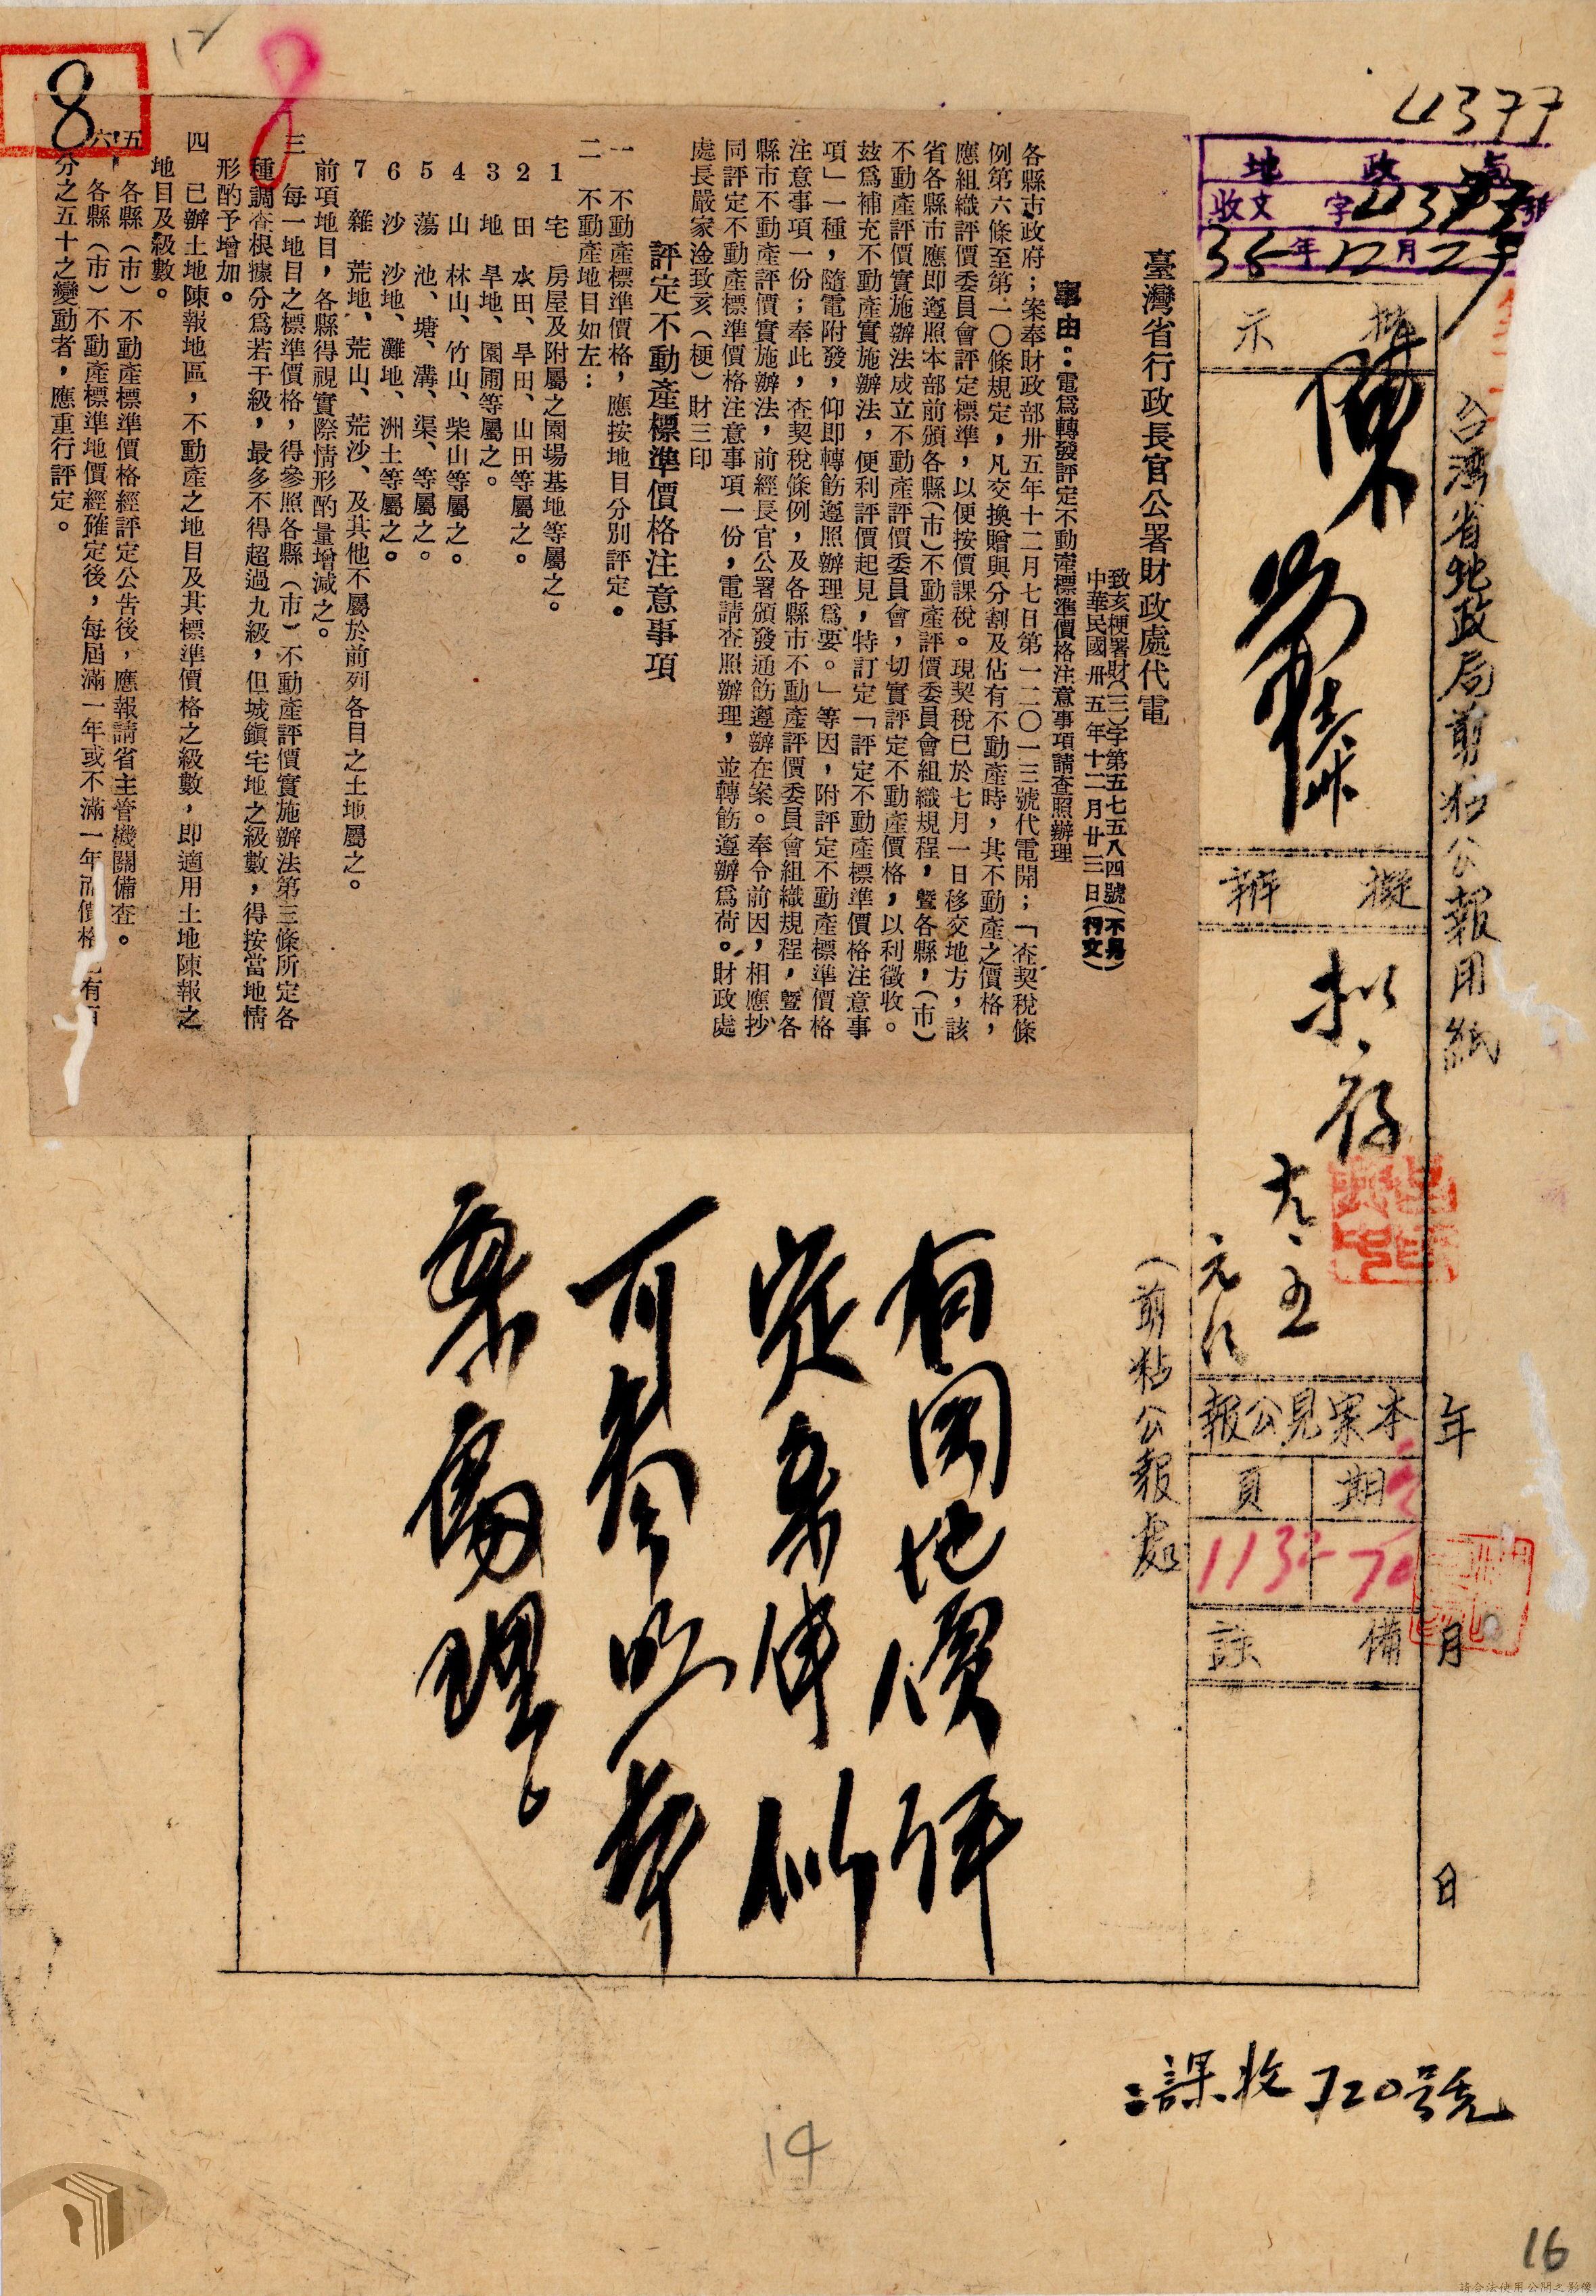 4377
地政局
收文 字 4377 號
35年12月27
台灣省地政局剪粘公報用紙
年 月 日
批示
擬辦
拟存
本案見公報
期 頁
70 1132
備註
(剪粘公報處)
臺灣省行政長官公署財政處代電
致亥梗署財(三)字第五七五八四號(不另行文)
中華民國卅五年十二月廿三日
事由:電爲轉發評定不動產標準價格注意事項請查照辦理
各縣市政府;案奉財政部卅五年十二月七日第一二〇一三號代電開;「查契稅條
例第六條至第一〇條規定,凡交換贈與分割及佔有不動產時,其不動產之價格,
應組織評價委員會評定標準,以便按價課稅。現契稅已於七月一日移交地方,該
省各縣市應即遵照本部前頒各縣(市)不動產評價委員會組織規程,暨各縣,(市)
不動產評價實施辦法成立不動產評價委員會,切實評定不動產價格,以利徵收。
茲爲補充不動產實施辦法,便利評價起見,特訂定「評定不動產標準價格注意事
項」一種,隨電附發,仰即轉飭遵照辦理爲要。」等因,附評定不動產標準價格
注意事項一份;奉此,查契稅條例,及各縣市不動產評價委員會組織規程,暨各
縣市不動產評價實施辦法,前經長官公署頒發通飭遵辦在案。奉令前因,相應抄
同評定不動產標準價格注意事項一份,電請查照辦理,並轉飭遵辦爲荷。財政處
處長嚴家淦致亥(梗)財三印
評定不動產標準價格注意事項
一 不動產標準價格,應按地目分別評定。
二 不動產地目如左:
1 宅 房屋及附屬之園場基地等屬之。
2 田 水田、旱田、山田等屬之。
3 地 旱地、園圃等屬之。
4 山 林山、竹山、柴山等屬之。
5 蕩 池、塘、溝、渠、等屬之。
6 沙 沙地、灘地、洲土等屬之。
7 雜 荒地、荒山、荒沙、及其他不屬於前列各目之土地屬之。
前項地目,各縣得視實際情形酌量增減之。
三 每一地目之標準價格,得參照各縣(市)不動產評價實施辦法第三條所定各
種調查根據分爲若干級,最多不得超過九級,但城鎭宅地之級數,得按當地情
形酌予增加。
四 已辦土地陳報地區,不動產之地目及其標準價格之級數,即適用土地陳報之
地目及級數。
五 各縣(市)不動產標準價格經評定公告後,應報請省主管機關備查。
六 各縣(市)不動產標準地價經確定後,每屆滿一年或不滿一年而價格 有百
分之五十之變動者,應重行評定。
有関地價評
定条件似
可参照本
案處理
二課收720號
8
8
12
14
16
請合法使用公開之影像